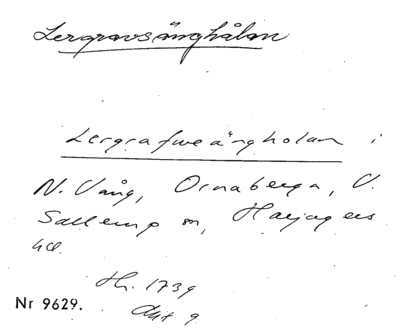 Lergravsänghålan
Lergrafweängholan i
N. Vång, Ornaberga, V.
Sallerup sn, Harjagers
hd.
Hs. 1739
Akt 9
Nr 9629.